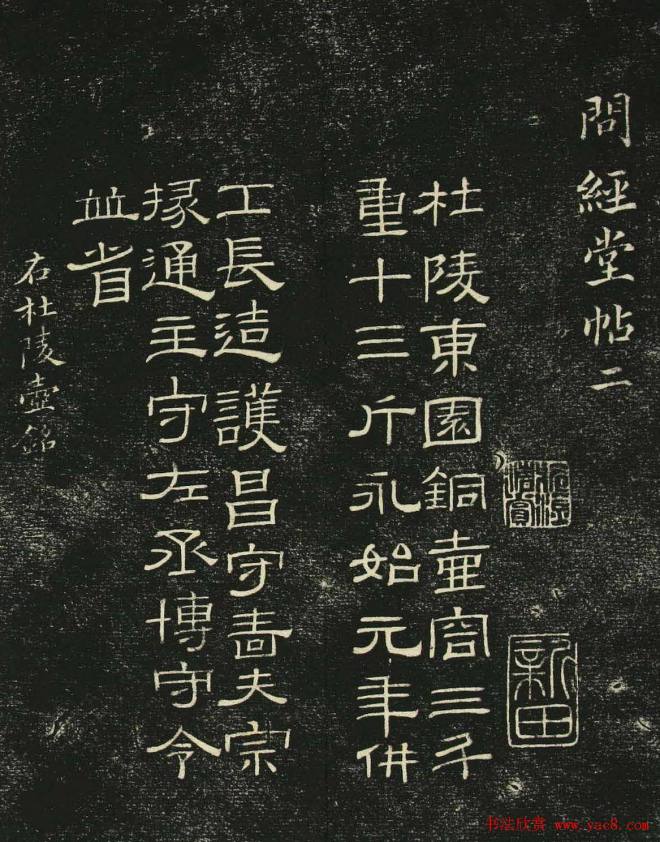 問經堂帖二
新田
杜陵東園銅壺容三斗
重十三斤永始元年供
工長造護昌守嗇夫宗
掾通主守左丞博守令
並省
右杜陵壺銘
书法欣赏 www.yac8.com